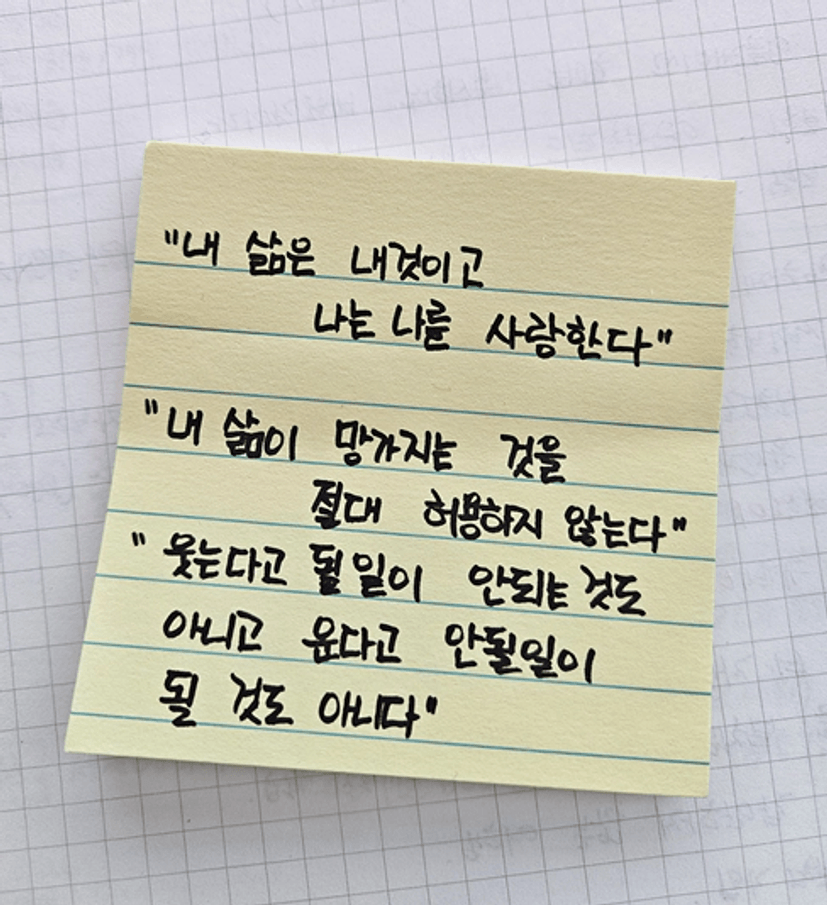 "내 삶은 내것이고
나는 나를 사랑한다"
"내 삶이 망가지는 것을
절대 허용하지 않는다"
"웃는다고 될일이 안되는 것도
아니고 운다고 안될일이
될 것도 아니다"